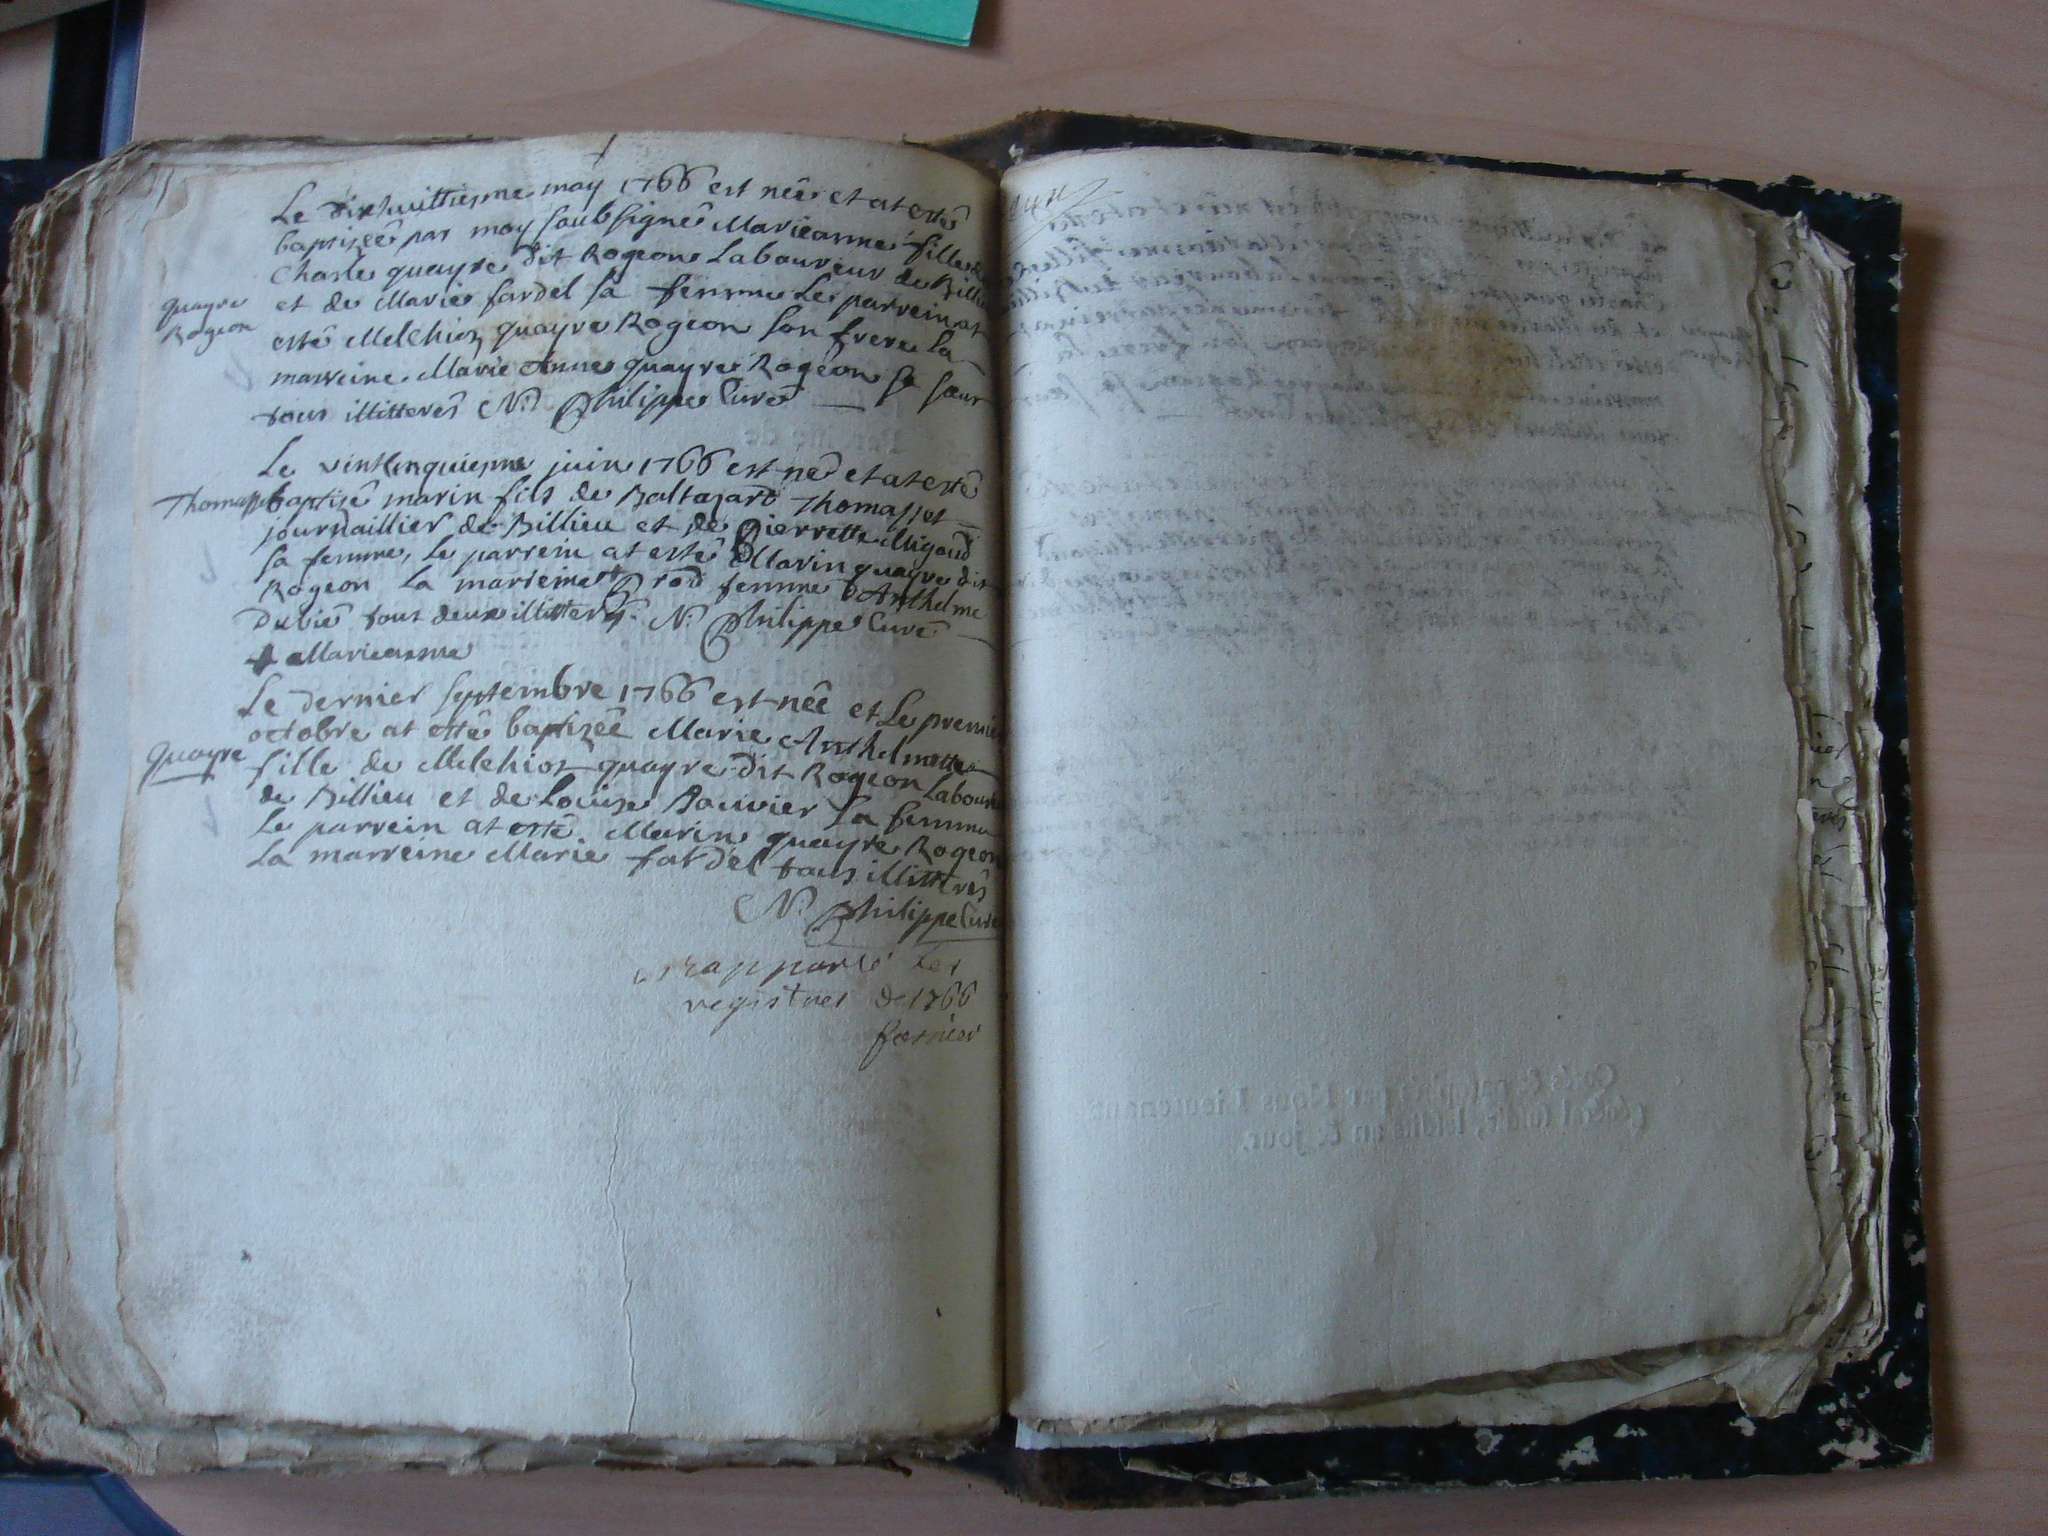 Le dixhuittiesme may 1766 est née et at esté
baptizée par moy soubsigné Marieanne fille de
Charle quayre dit Rogeon Laboureur de Billieu
quayre
Rogeon
et de Marie fardel sa femme Le parrein at
esté Melchior quayre Rogeon son frere La
marreine Marie Anne quayre Rogeon sa sœur
tous illitterés N. Philippe Curé
Le vintcinquiesme juin 1766 est né et at esté
Thomasset
baptizé marin fils de Baltazard Thomasset
journaillier de Billieu et de Pierrette Migand
sa femme, Le parrein at esté Marin quayre dit
Rogeon La marreine + Brod femme d'Anthelme
Dubié tous deux illitterés. N. Philippe Curé
+ Marieanne
Le dernier septembre 1766 est née et Le premier
octobre at esté baptizée Marie Anthelmette
quayre
fille de Melchior quayre dit Rogeon Laboureur
de Billieu et de Louise Bouvier sa femme
Le parrein at esté Marin quayre Rogeon
La marreine Marie fardel tous illitterés
N. Philippe Curé
rapporté les
registres de 1766